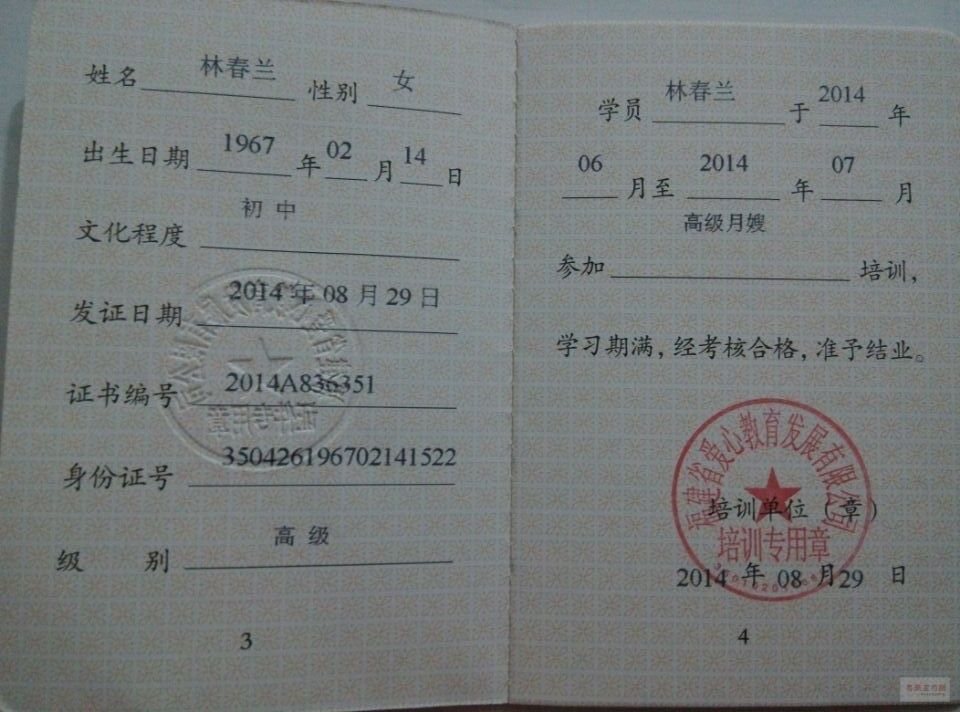 姓名 林春兰 性别 女
出生日期 1967 年 02 月 14 日
文化程度 初中
发证日期 2014 年 08 月 29 日
证书编号 2014A836351
身份证号 350426196702141522
级 别 高级
3
学员 林春兰 于 2014 年
06 月至 2014 年 07 月
高级月嫂
参加 培训，
学习期满，经考核合格，准予结业。
福建省爱心教育发展有限公司
培训单位（章）
培训专用章
2014 年 08 月 29 日
4
证件专用章